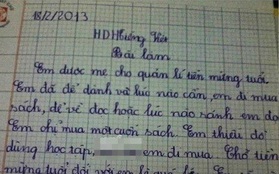 18/2/2013
HDHướng Kết
Bài làm
Em được mẹ cho quản lí tiền mừng tuổi.
Em đã để dành và lúc nào cần, em đi mua
sách, để về đọc hoặc lúc nào rảnh em đọ
Em chỉ mua một cuốn sách. Em thiếu đồ
dùng học tập, em đi mua. Chỗ tiền
mừng tuổi đối với em là